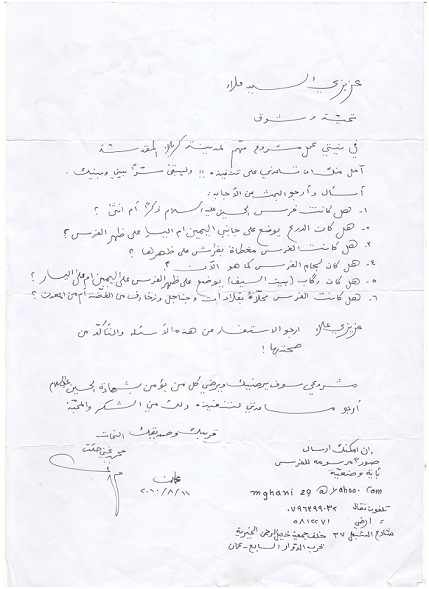 عزيزي السيد علاء
تحية وشوق
في نيتي عمل مشروع مهم لمدينة كربلاء المقدسة
آمل منك ان تساعدني على تنفيذه !! وليبقى سرّاً بيني وبينك.
أسئال وأرجو البحث عن الأجابه:
١- هل كانت فرس الحسين عليه السلام ذكرٌ أم انثى ؟
٢- هل كان الدرع يوضع على جانبي اليمين ام اليسار على ظهر الفرس ؟
٣- هل كانت الفرس مغطاة بفراش على ظهرها ؟
٤- هل كان لجام الفرس كما هو الآن ؟
٥- هل كان ركاب (بيت السيف) يوضع على ظهر الفرس على اليمين ام على اليسار ؟
٦- هل كانت الفرس محلاّة بقلادات وجناجل وزخارف من الفضّة أم من المعدن ؟
عزيزي علاء ارجو الاستفسار عن هذه الأسئله والتأكّد من
صحتها !
مشروعي سوف يرضيك ويرضي كل من يؤمن بشهادة الحسين عليه السلام
أرجو مساعدتي لتنفيذه ولك مني الشكر والمحبّة
قريبك وصديقك النحات
محمد غني حكمت
عمان
٢٠١٠/٨/١١
إن امكنك ارسال
صورة مرسومه للفرس
بأية وضعية
mghani 29 @yahoo.com
تلفون نقال ٠٧٩٦٢٩٩٠٣٢
= ارضي ٥٨١٢٢٧١
شارع ٣٧ خلف جمعية الخيرية
قرب الدوار السابع - عمان